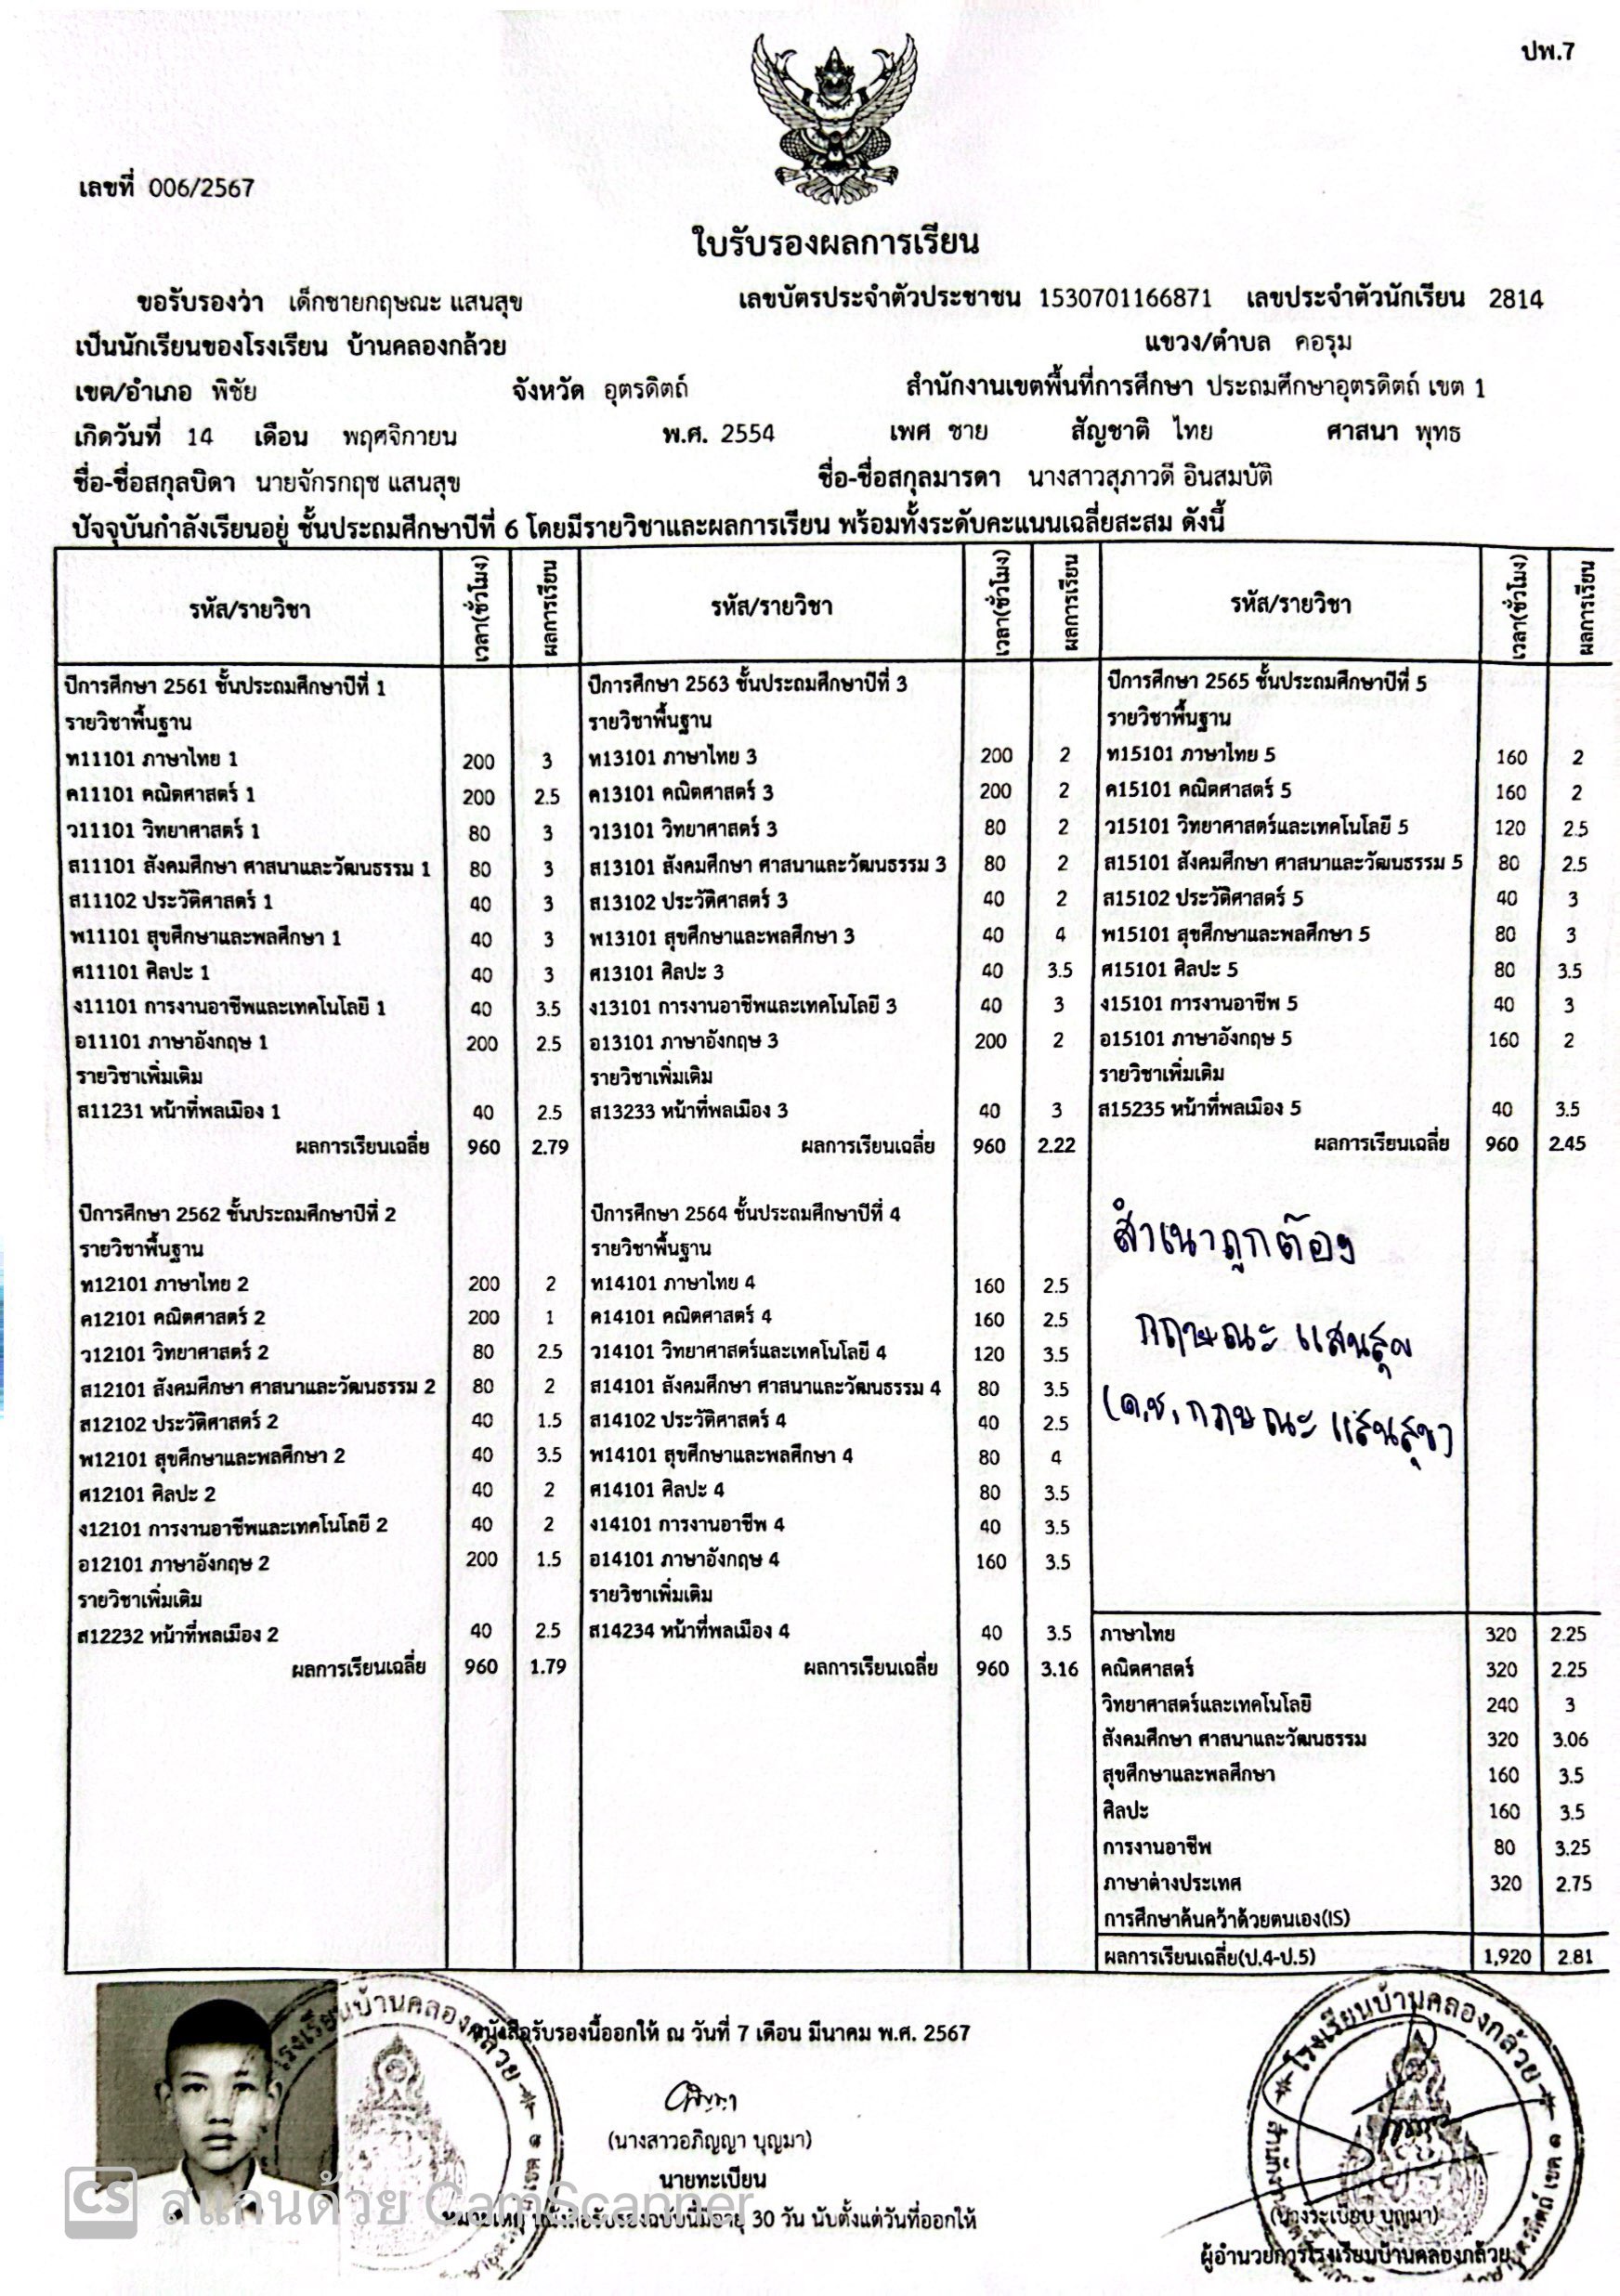 ปพ.7
เลขที่ 006/2567
ใบรับรองผลการเรียน
ขอรับรองว่า เด็กชายกฤษณะ แสนสุข เลขบัตรประจำตัวประชาชน 1530701166871 เลขประจำตัวนักเรียน 2814
เป็นนักเรียนของโรงเรียน บ้านคลองกล้วย แขวง/ตำบล คอรุม
เขต/อำเภอ พิชัย จังหวัด อุตรดิตถ์ สำนักงานเขตพื้นที่การศึกษา ประถมศึกษาอุตรดิตถ์ เขต 1
เกิดวันที่ 14 เดือน พฤศจิกายน พ.ศ. 2554 เพศ ชาย สัญชาติ ไทย ศาสนา พุทธ
ชื่อ-ชื่อสกุลบิดา นายจักรกฤช แสนสุข ชื่อ-ชื่อสกุลมารดา นางสาวสุภาวดี อินสมบัติ
ปัจจุบันกำลังเรียนอยู่ ชั้นประถมศึกษาปีที่ 6 โดยมีรายวิชาและผลการเรียน พร้อมทั้งระดับคะแนนเฉลี่ยสะสม ดังนี้
รหัส/รายวิชา เวลา(ชั่วโมง) ผลการเรียน
ปีการศึกษา 2561 ชั้นประถมศึกษาปีที่ 1
รายวิชาพื้นฐาน
ท11101 ภาษาไทย 1 200 3
ค11101 คณิตศาสตร์ 1 200 2.5
ว11101 วิทยาศาสตร์ 1 80 3
ส11101 สังคมศึกษา ศาสนาและวัฒนธรรม 1 80 3
ส11102 ประวัติศาสตร์ 1 40 3
พ11101 สุขศึกษาและพลศึกษา 1 40 3
ศ11101 ศิลปะ 1 40 3
ง11101 การงานอาชีพและเทคโนโลยี 1 40 3.5
อ11101 ภาษาอังกฤษ 1 200 2.5
รายวิชาเพิ่มเติม
ส11231 หน้าที่พลเมือง 1 40 2.5
ผลการเรียนเฉลี่ย 960 2.79
ปีการศึกษา 2562 ชั้นประถมศึกษาปีที่ 2
รายวิชาพื้นฐาน
ท12101 ภาษาไทย 2 200 2
ค12101 คณิตศาสตร์ 2 200 1
ว12101 วิทยาศาสตร์ 2 80 2.5
ส12101 สังคมศึกษา ศาสนาและวัฒนธรรม 2 80 2
ส12102 ประวัติศาสตร์ 2 40 1.5
พ12101 สุขศึกษาและพลศึกษา 2 40 3.5
ศ12101 ศิลปะ 2 40 2
ง12101 การงานอาชีพและเทคโนโลยี 2 40 2
อ12101 ภาษาอังกฤษ 2 200 1.5
รายวิชาเพิ่มเติม
ส12232 หน้าที่พลเมือง 2 40 2.5
ผลการเรียนเฉลี่ย 960 1.79
รหัส/รายวิชา เวลา(ชั่วโมง) ผลการเรียน
ปีการศึกษา 2563 ชั้นประถมศึกษาปีที่ 3
รายวิชาพื้นฐาน
ท13101 ภาษาไทย 3 200 2
ค13101 คณิตศาสตร์ 3 200 2
ว13101 วิทยาศาสตร์ 3 80 2
ส13101 สังคมศึกษา ศาสนาและวัฒนธรรม 3 80 2
ส13102 ประวัติศาสตร์ 3 40 2
พ13101 สุขศึกษาและพลศึกษา 3 40 4
ศ13101 ศิลปะ 3 40 3.5
ง13101 การงานอาชีพและเทคโนโลยี 3 40 3
อ13101 ภาษาอังกฤษ 3 200 2
รายวิชาเพิ่มเติม
ส13233 หน้าที่พลเมือง 3 40 3
ผลการเรียนเฉลี่ย 960 2.22
ปีการศึกษา 2564 ชั้นประถมศึกษาปีที่ 4
รายวิชาพื้นฐาน
ท14101 ภาษาไทย 4 160 2.5
ค14101 คณิตศาสตร์ 4 160 2.5
ว14101 วิทยาศาสตร์และเทคโนโลยี 4 120 3.5
ส14101 สังคมศึกษา ศาสนาและวัฒนธรรม 4 80 3.5
ส14102 ประวัติศาสตร์ 4 40 2.5
พ14101 สุขศึกษาและพลศึกษา 4 80 4
ศ14101 ศิลปะ 4 80 3.5
ง14101 การงานอาชีพ 4 40 3.5
อ14101 ภาษาอังกฤษ 4 160 3.5
รายวิชาเพิ่มเติม
ส14234 หน้าที่พลเมือง 4 40 3.5
ผลการเรียนเฉลี่ย 960 3.16
รหัส/รายวิชา เวลา(ชั่วโมง) ผลการเรียน
ปีการศึกษา 2565 ชั้นประถมศึกษาปีที่ 5
รายวิชาพื้นฐาน
ท15101 ภาษาไทย 5 160 2
ค15101 คณิตศาสตร์ 5 160 2
ว15101 วิทยาศาสตร์และเทคโนโลยี 5 120 2.5
ส15101 สังคมศึกษา ศาสนาและวัฒนธรรม 5 80 2.5
ส15102 ประวัติศาสตร์ 5 40 3
พ15101 สุขศึกษาและพลศึกษา 5 80 3
ศ15101 ศิลปะ 5 80 3.5
ง15101 การงานอาชีพ 5 40 3
อ15101 ภาษาอังกฤษ 5 160 2
รายวิชาเพิ่มเติม
ส15235 หน้าที่พลเมือง 5 40 3.5
ผลการเรียนเฉลี่ย 960 2.45
สำเนาถูกต้อง
กฤษณะ แสนสุข
(ด.ช. กฤษณะ แสนสุข)
ภาษาไทย 320 2.25
คณิตศาสตร์ 320 2.25
วิทยาศาสตร์และเทคโนโลยี 240 3
สังคมศึกษา ศาสนาและวัฒนธรรม 320 3.06
สุขศึกษาและพลศึกษา 160 3.5
ศิลปะ 160 3.5
การงานอาชีพ 80 3.25
ภาษาต่างประเทศ 320 2.75
การศึกษาค้นคว้าด้วยตนเอง(IS)
ผลการเรียนเฉลี่ย(ป.4-ป.5) 1,920 2.81
โรงเรียนบ้านคลองกล้วย
หนังสือรับรองนี้ออกให้ ณ วันที่ 7 เดือน มีนาคม พ.ศ. 2567
(นางสาวอภิญญา บุญมา)
นายทะเบียน
หมายเหตุ หนังสือรับรองฉบับนี้มีอายุ 30 วัน นับตั้งแต่วันที่ออกให้
โรงเรียนบ้านคลองกล้วย
(นางระเบียบ บุญมา)
ผู้อำนวยการโรงเรียนบ้านคลองกล้วย
CS สแกนด้วย CamScanner